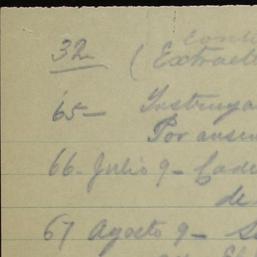 32
(Extract
65- Instruya
Por ausen
66- Julio 9- Cade
de
67 Agosto 9-
El